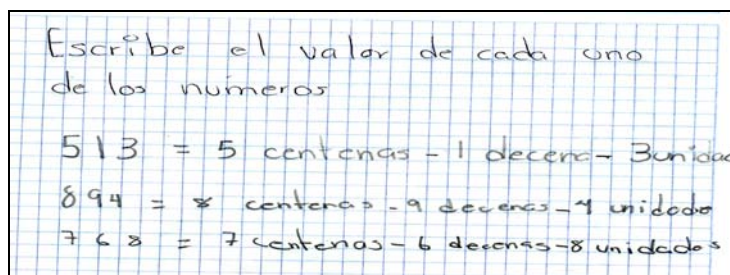 Escribe el valor de cada uno
de los numeros
513 = 5 centenas - 1 decena - 3unidad
894 = 8 centenas - 9 decenas - 4 unidade
768 = 7 centenas - 6 decenas - 8 unidades